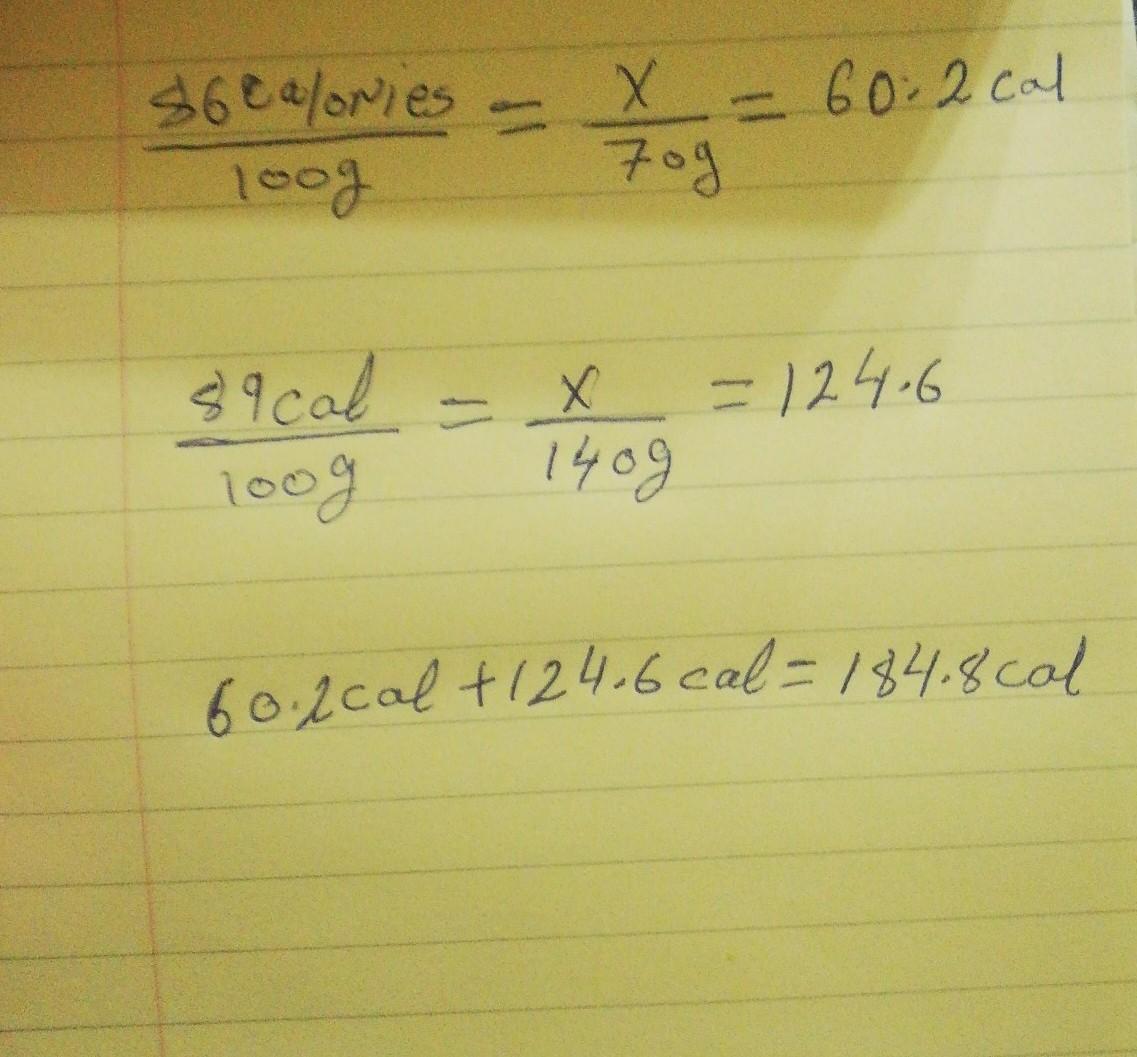 86 Calories = X = 60.2 cal
100g 70g
89 cal = X = 124.6
100g 140g
60.2 cal + 124.6 cal = 184.8 cal